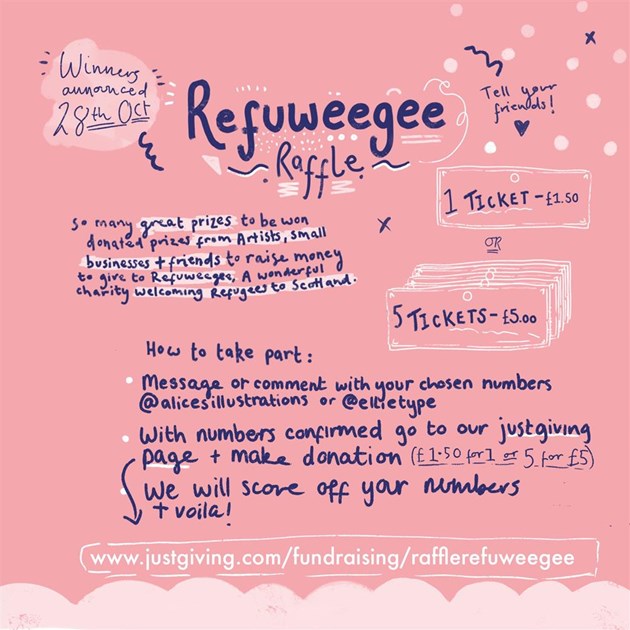 Winners
announced
28th Oct
Tell your
friends!
Refuweegee
Raffle
1 TICKET - £1.50
OR
5 TICKETS - £5.00
So many great prizes to be won
donated prizes from Artists, small
businesses + friends to raise money
to give to Refuweegee, A wonderful
charity welcoming Refugees to Scotland.
How to take part:
• Message or comment with your chosen numbers
@alicesillustrations or @ellietype
• With numbers confirmed go to our justgiving
page + make donation (£1.50 for 1 or 5 for £5)
• We will score off your numbers
+ voila!
www.justgiving.com/fundraising/rafflerefuweegee